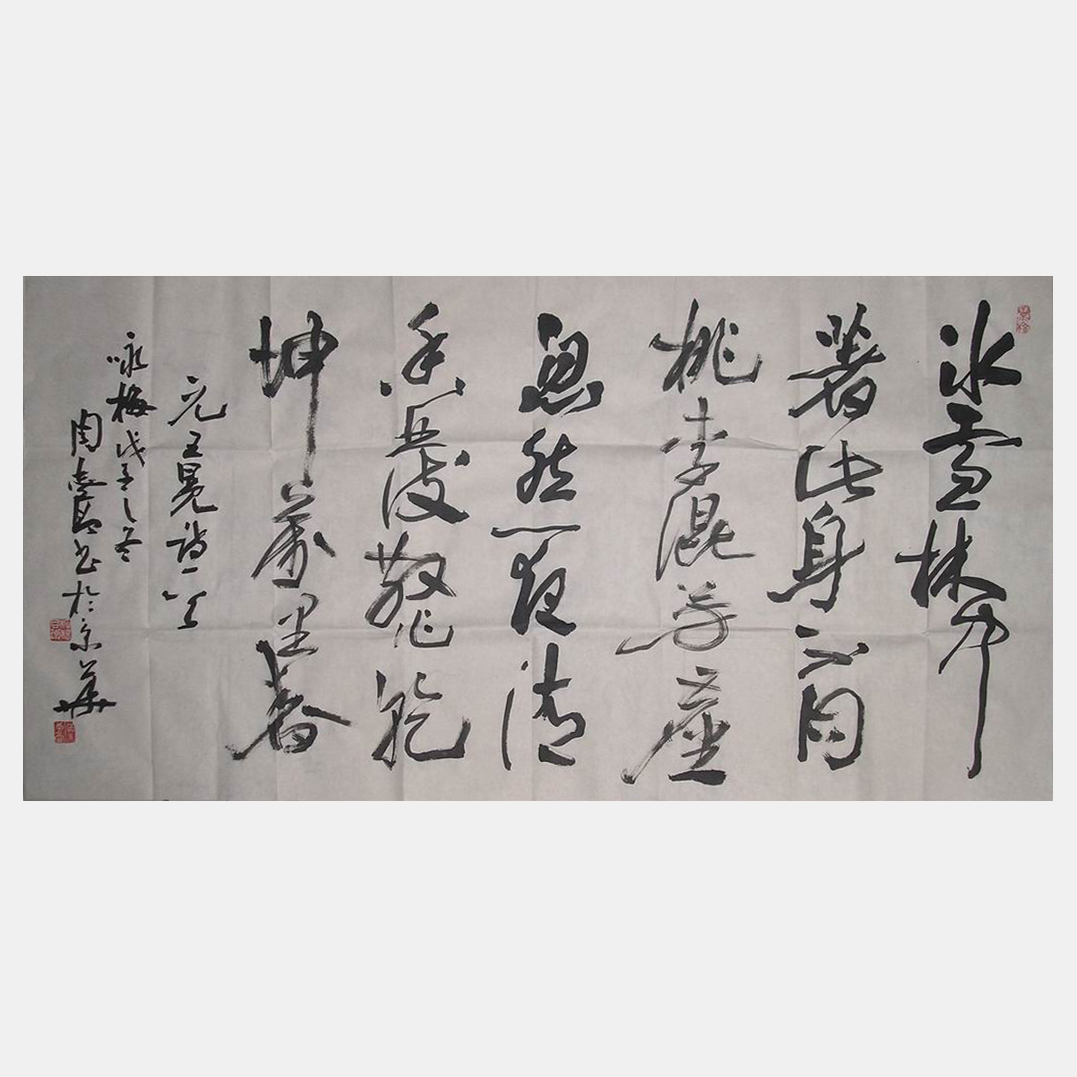 冰雪林中
著此身不同
桃李混芳塵
忽然一夜清
香發散作乾
坤萬里春
元王冕詩一首
咏梅戊子之冬
周书於京華